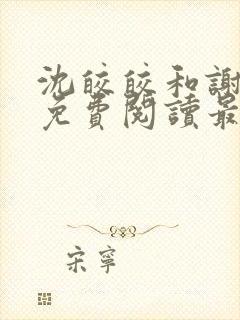 沈皎皎和謝
免費閱讀最
宋寧